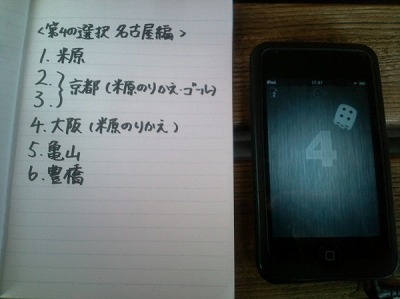 <第4の選択 名古屋編>
1. 米原
2.
3. } 京都(米原のりかえ・ゴール)
4. 大阪(米原のりかえ)
5. 亀山
6. 豊橋
4